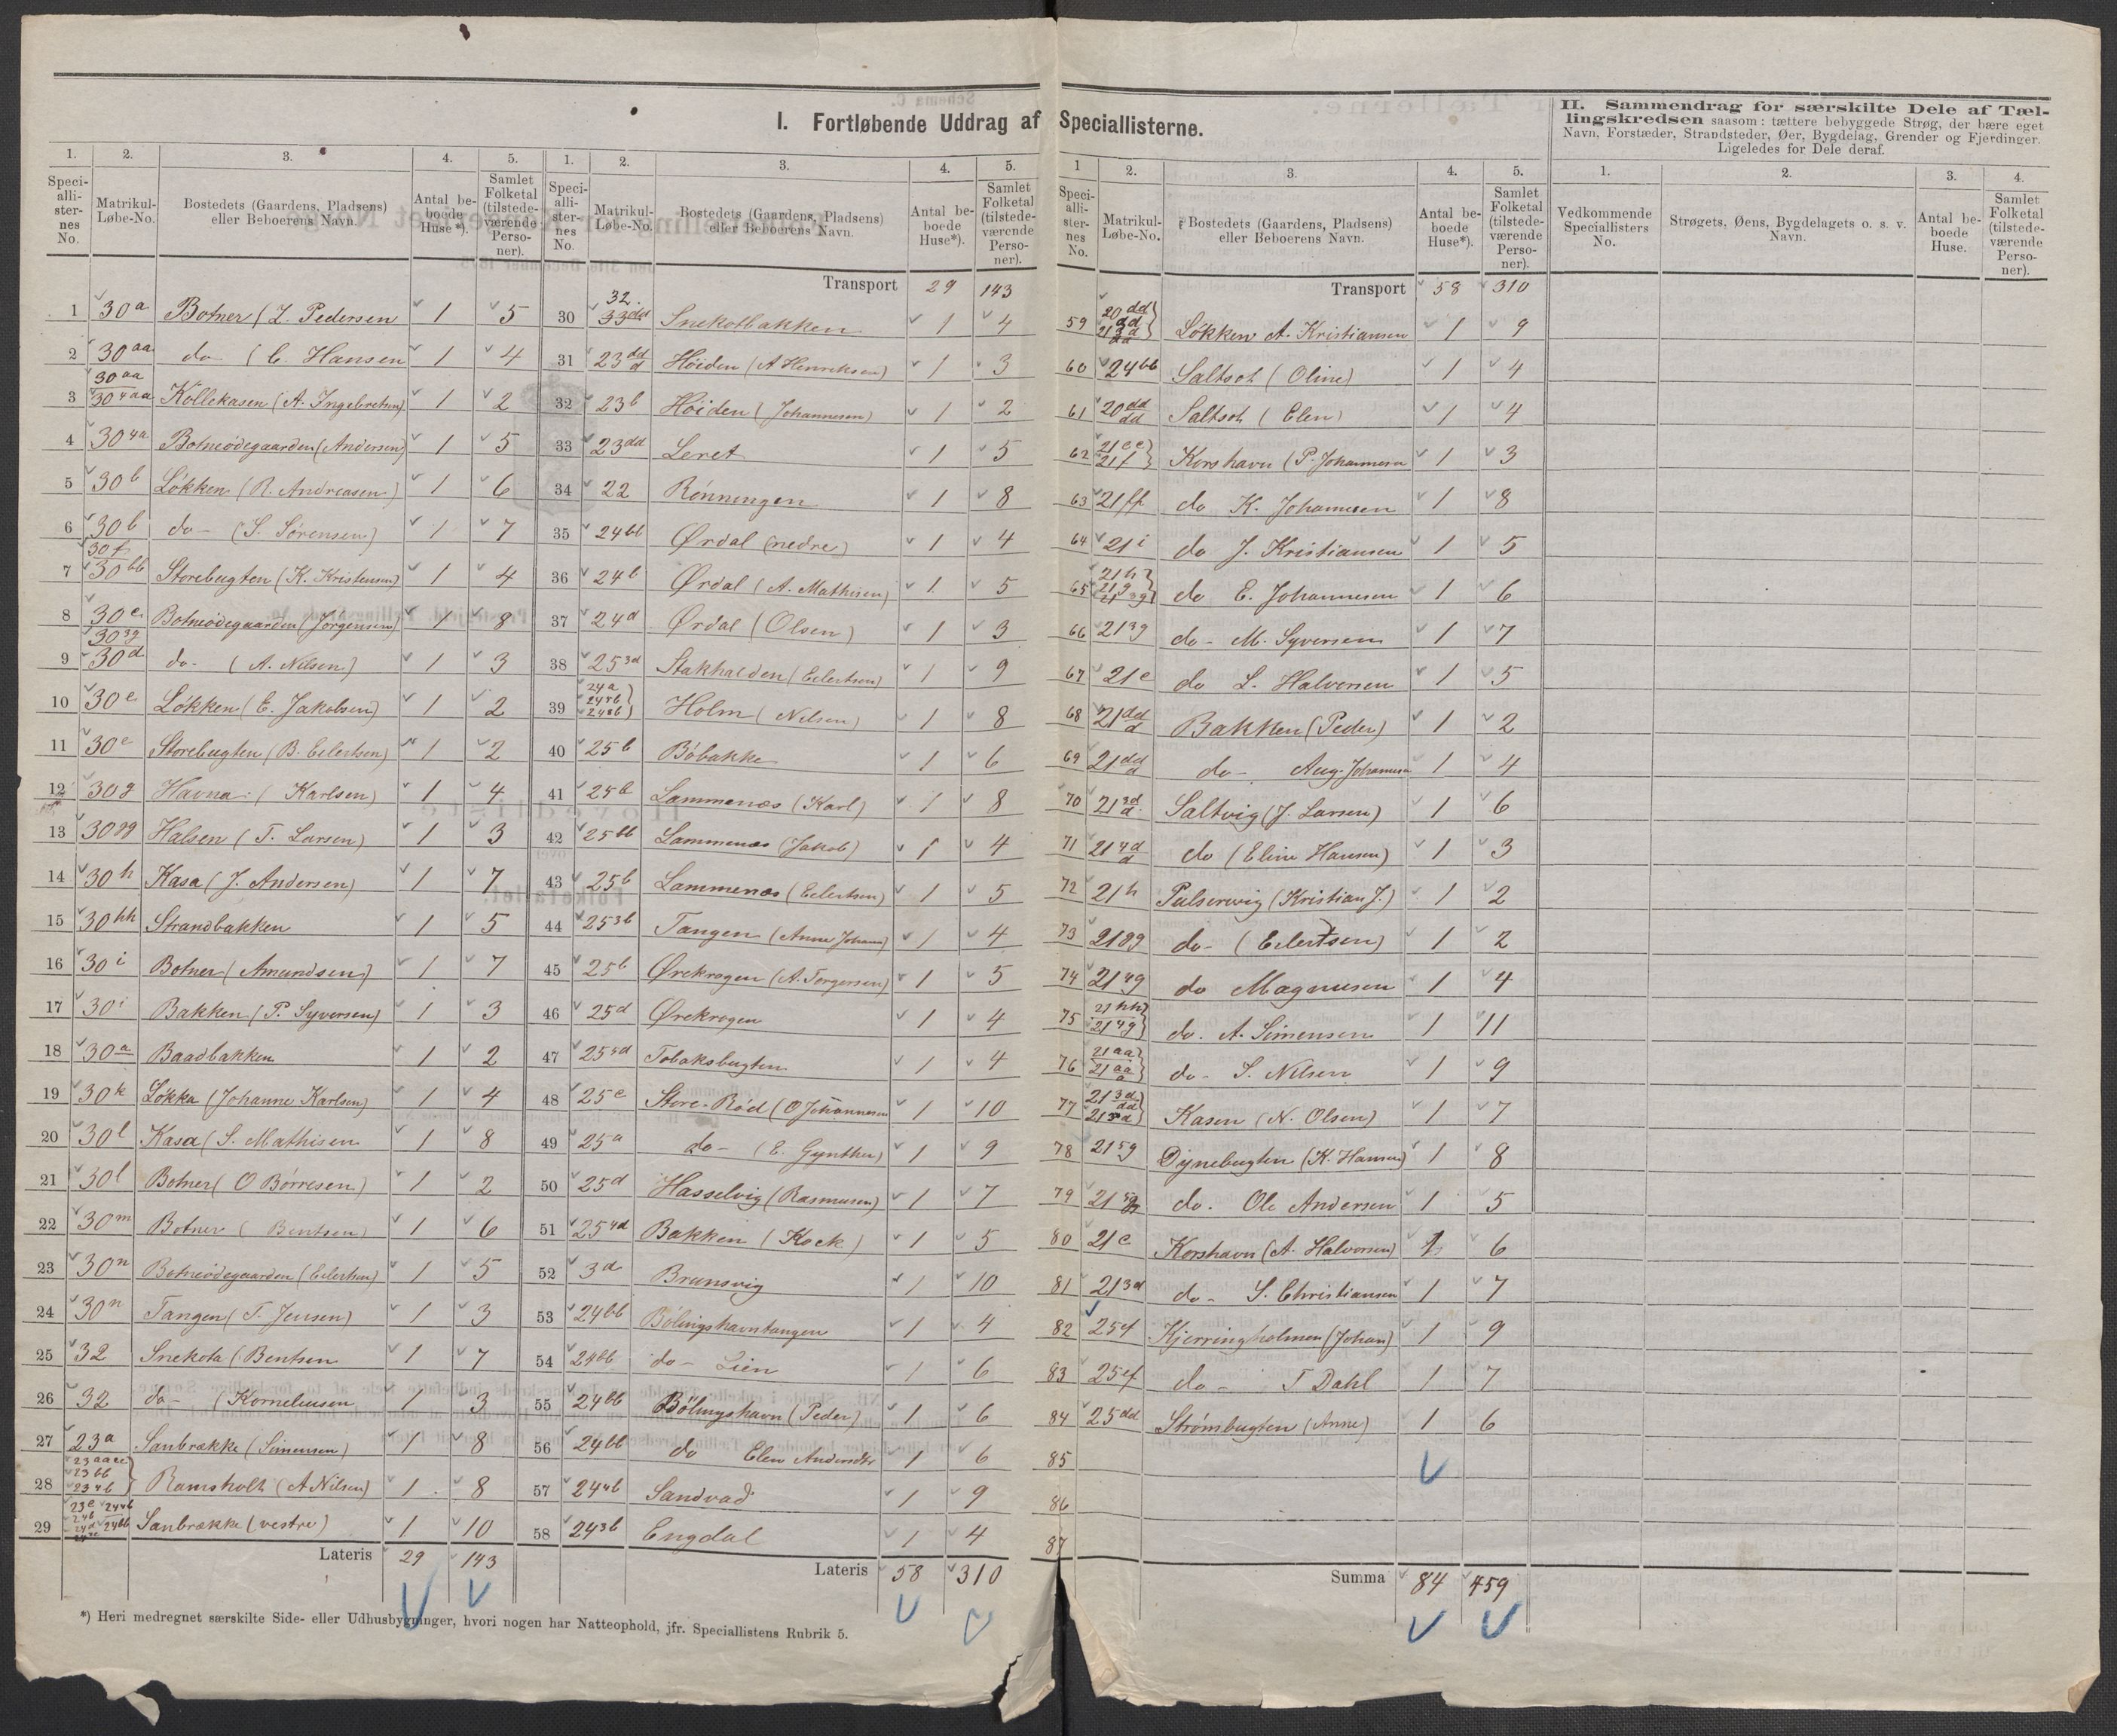 I. Fortløbende Uddrag af Speciallisterne.
II. Sammendrag for særskilte Dele af Tæl-
lingskredsen saasom: tættere bebyggede Strøg, der bære eget
Navn, Forstæder, Strandsteder, Øer, Bygdelag, Grender og Fjerdinger.
Ligeledes for Dele deraf.
1. 2. 3. 4. 5.
Speci-alli-ster-nes No. Matrikul-Løbe-No. Bostedets (Gaardens, Pladsens) eller Beboerens Navn. Antal be-boede Huse*). Samlet Folketal (tilstede-værende Perso-ner).
1 30a Botner (L. Pedersen 1 5
2 30aa do (C. Hansen 1 4
3 30aa 304aa Kollekasen (A. Ingebretsen) 1 2
4 304a Botneødegaarden (Andersen) 1 5
5 30b Løkken (R. Andreasen) 1 6
6 30b do- (S. Sørensen) 1 7
7 30f 30bb Storebugten (K. Kristensen) 1 4
8 30e Botneødegaarden (Jørgensen) 1 8
9 303g 30d do- (A. Nilsen) 1 3
10 30e Løkken (E. Jakobsen) 1 2
11 30e Storebugten (B. Eilertsen) 1 2
12 30g Havna (Karlsen) 1 4
13 30gg Halsen (T. Larsen) 1 3
14 30h Kasa (J. Andersen) 1 7
15 30hh Strandbakken 1 5
16 30i Botner (Amundsen) 1 7
17 30i Bakken (P. Syversen) 1 3
18 30a Baadbakken 1 2
19 30k Løkka (Johanne Karlsen) 1 4
20 30l Kasa (S. Mathisen 1 8
21 30l Botner (O Børresen) 1 2
22 30m Botner (Bentsen) 1 6
23 30n Botneødegaarden (Eilertsen) 1 5
24 30n Tangen (T. Jensen) 1 3
25 32 Snekota (Bentsen 1 7
26 32 do- (Korneliusen 1 3
27 23a Sanbrække (Simensen) 1 8
28 23bb 234b Ramsholt (A Nilsen) 1 8
29 23e 24b 24bb Sanbrække (vestre) 1 10
Lateris 29 143
*) Heri medregnet særskilte Side- eller Udhusbygninger, hvori nogen har Natteophold, jfr. Speciallistens Rubrik 5.
1. 2. 3. 4. 5.
Speci-alli-ster-nes No. Matrikul-Løbe-No. Bostedets (Gaardens, Pladsens) eller Beboerens Navn. Antal be-boede Huse*). Samlet Folketal (tilstede-værende Perso-ner).
Transport 29 143
30 32. Snekotbakken 1 4
31 23dd d Høiden (A Henriksen) 1 3
32 23b Høiden (Johannesen) 1 2
33 23dd Leret 1 5
34 22 Rønningen 1 8
35 24bb Ørdal (nedre) 1 4
36 24b Ørdal (A. Mathisen) 1 5
37 24d Ørdal (Olsen) 1 3
38 253d Stakhalden (Eilertsen) 1 9
39 24a 244b 243b Holm (Nilsen) 1 8
40 25b Bøbakke 1 6
41 25b Lammenæs (Karl) 1 8
42 25bb Lammenæs (Jakob) 1 4
43 25b Lammenæs (Eilertsen) 1 5
44 253b Tangen (Anne Johans) 1 4
45 25b Ørekrogen (A. Torgersen) 1 5
46 25d Ørekrogen 1 4
47 254d Tobaksbugten 1 4
48 25e Store-Rød (O Johannesen 1 10
49 25a do- (E. Gynther) 1 9
50 25d Hasselvig (Rasmusen) 1 7
51 254d Bakken (Kock) 1 5
52 3d Brunsvig 1 10
53 24bb Bølingshavntangen 1 4
54 24bb do- Lien 1 6
55 24bb Bølingshavn (Peder) 1 6
56 24bb do Elen Andersdtr 1 6
57 244b Sandvad 1 9
58 243b Engdal 1 4
Lateris 58 310
1 2. 3. 4. 5.
Speci-alli-ster-nes No. Matrikul-Løbe-No. Bostedets (Gaardens, Pladsens) eller Beboerens Navn. Antal be-boede Huse*). Samlet Folketal (tilstede-værende Perso-ner).
Transport 58 310
59 20dd dd Løkken A. Kristiansen 1 9
60 24bb Saltsot (Oline) 1 4
61 20dd dd Saltsot (Elen) 1 4
62 21ee 21f Korshavn (P. Johannesen 1 3
63 21ff do K. Johannesen 1 8
64 21i do J. Kristiansen 1 5
65 21h 21g 213g do E. Johannesen 1 6
66 213g do- M. Syversen 1 7
67 21e do L. Halversen 1 5
68 21dd d Bakken (Peder) 1 2
69 21dd d do- Aug. Johannesen 1 4
70 213d d Saltvig (J. Larsen) 1 6
71 214d d do (Eline Hansen) 1 3
72 21h Pulservig (Kristian J.) 1 2
73 21gg do- (Eilertsen) 1 2
74 214g do Magnusen 1 4
75 21hh 214g do. A. Simensen 1 11
76 21aa 21aa a do- S. Nilsen 1 9
77 213d dd Kasen (N. Olsen) 1 7
78 215g Dynebugten (K. Hansen) 1 8
79 21 do. Ole Andersen 1 5
80 21e Korshavn (A. Halvorsen) 1 6
81 213d do- S. Christiansen 1 7
82 25ef Kjerringholmen (Johan) 1 9
83 25ef do- T Dahl 1 7
84 25dd Strømbugten (Anne) 1 6
85
86
87
Summa 84 459
1. 2. 3. 4.
Vedkommende Speciallisters No. Strøgets, Øens, Bygdelagets o. s. v. Navn. Antal be-boede Huse. Samlet Folketal (tilstede-værende Perso-ner).